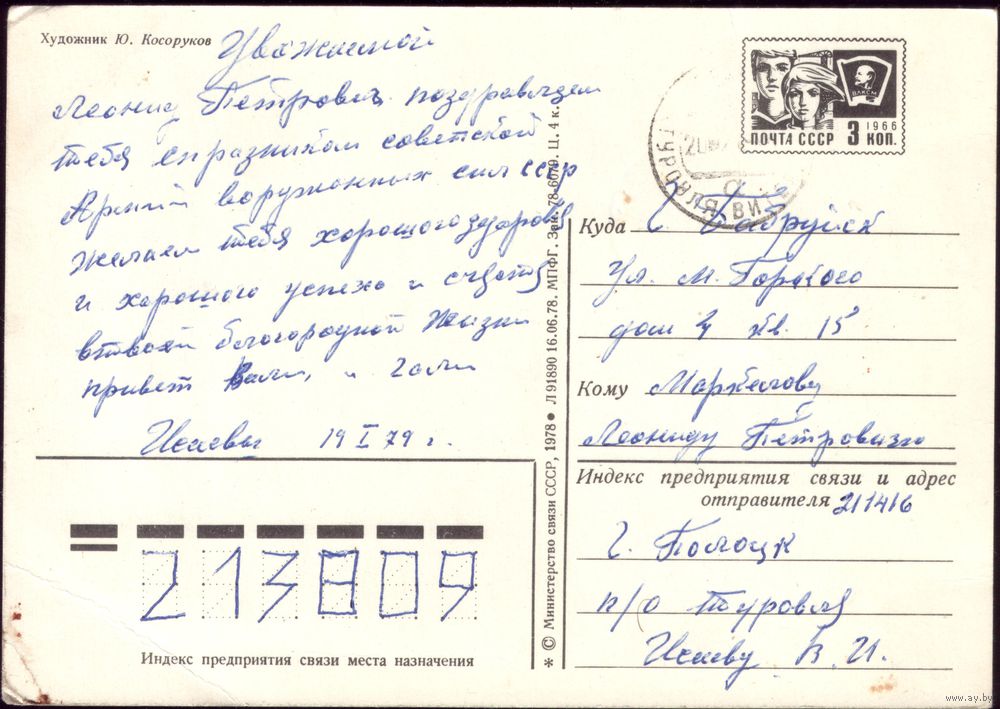 Художник Ю. Косоруков
Уважаемой
Леонид Петрович поздравляем
тебя с праздником советской
Армий воружонных сил ссср
желаем тебя хорошого здоровя
и хорошого успеха и счастя
втвоей благородной жизни
привет Вали, и Гали
Исаевы 19 I 79 г.
ПОЧТА СССР 3 КОП.
1966
ВЛКСМ
Куда г. Бабруйск
ул. М. Горького
дом 4 кв. 15
Кому Маркелову
Леониду Петровичю
Индекс предприятия связи и адрес
отправителя 211416
г. Полоцк
п/о Туровля
Исаеву В. И.
213809
Индекс предприятия связи места назначения
* © Министерство связи СССР, 1978 ● Л 91890 16.06.78. МПФГ. Зак. 78-6079. Ц. 4 к.
www.ay.by